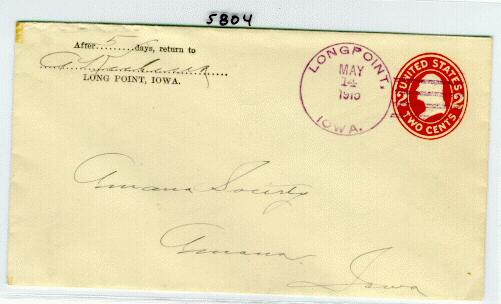 5804
After 5 days, return to
LONG POINT, IOWA.
LONGPOINT,
MAY
14
1915
IOWA.
UNITED STATES
2 2
TWO CENTS
Amana Society
Amana
Iowa